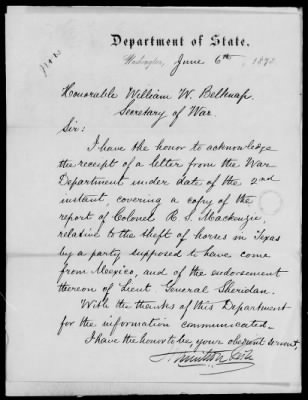 Department of State.
Washington, June 6th, 1873
Honorable William W. Belknap.
Secretary of War.
Sir:
I have the honor to acknowledge
the receipt of a letter from the War
Department under date of the 2nd
instant, covering a copy of the
report of Colonel R. S. Mackenzie,
relative to the theft of horses in Texas
by a party supposed to have come
from Mexico, and of the endorsement
thereon of Lieut General Sheridan.
With the thanks of this Department
for the information communicated.
I have the honor to be, your obedient servant,
Hamilton Fish